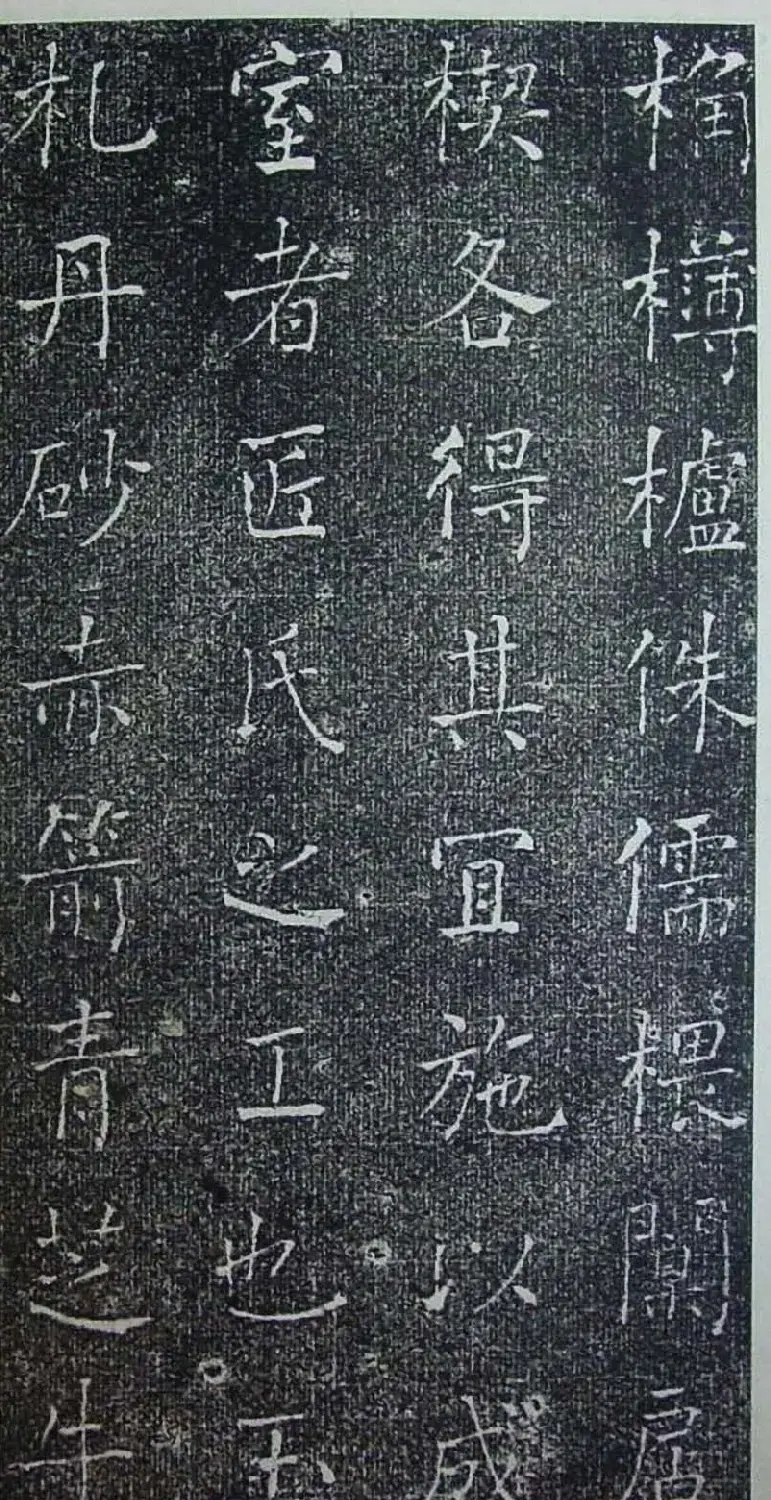 桷欂櫨侏儒椳闑扂
楔各得其冝施以成
室者匠氏之工也玉
札丹砂赤箭青芝牛